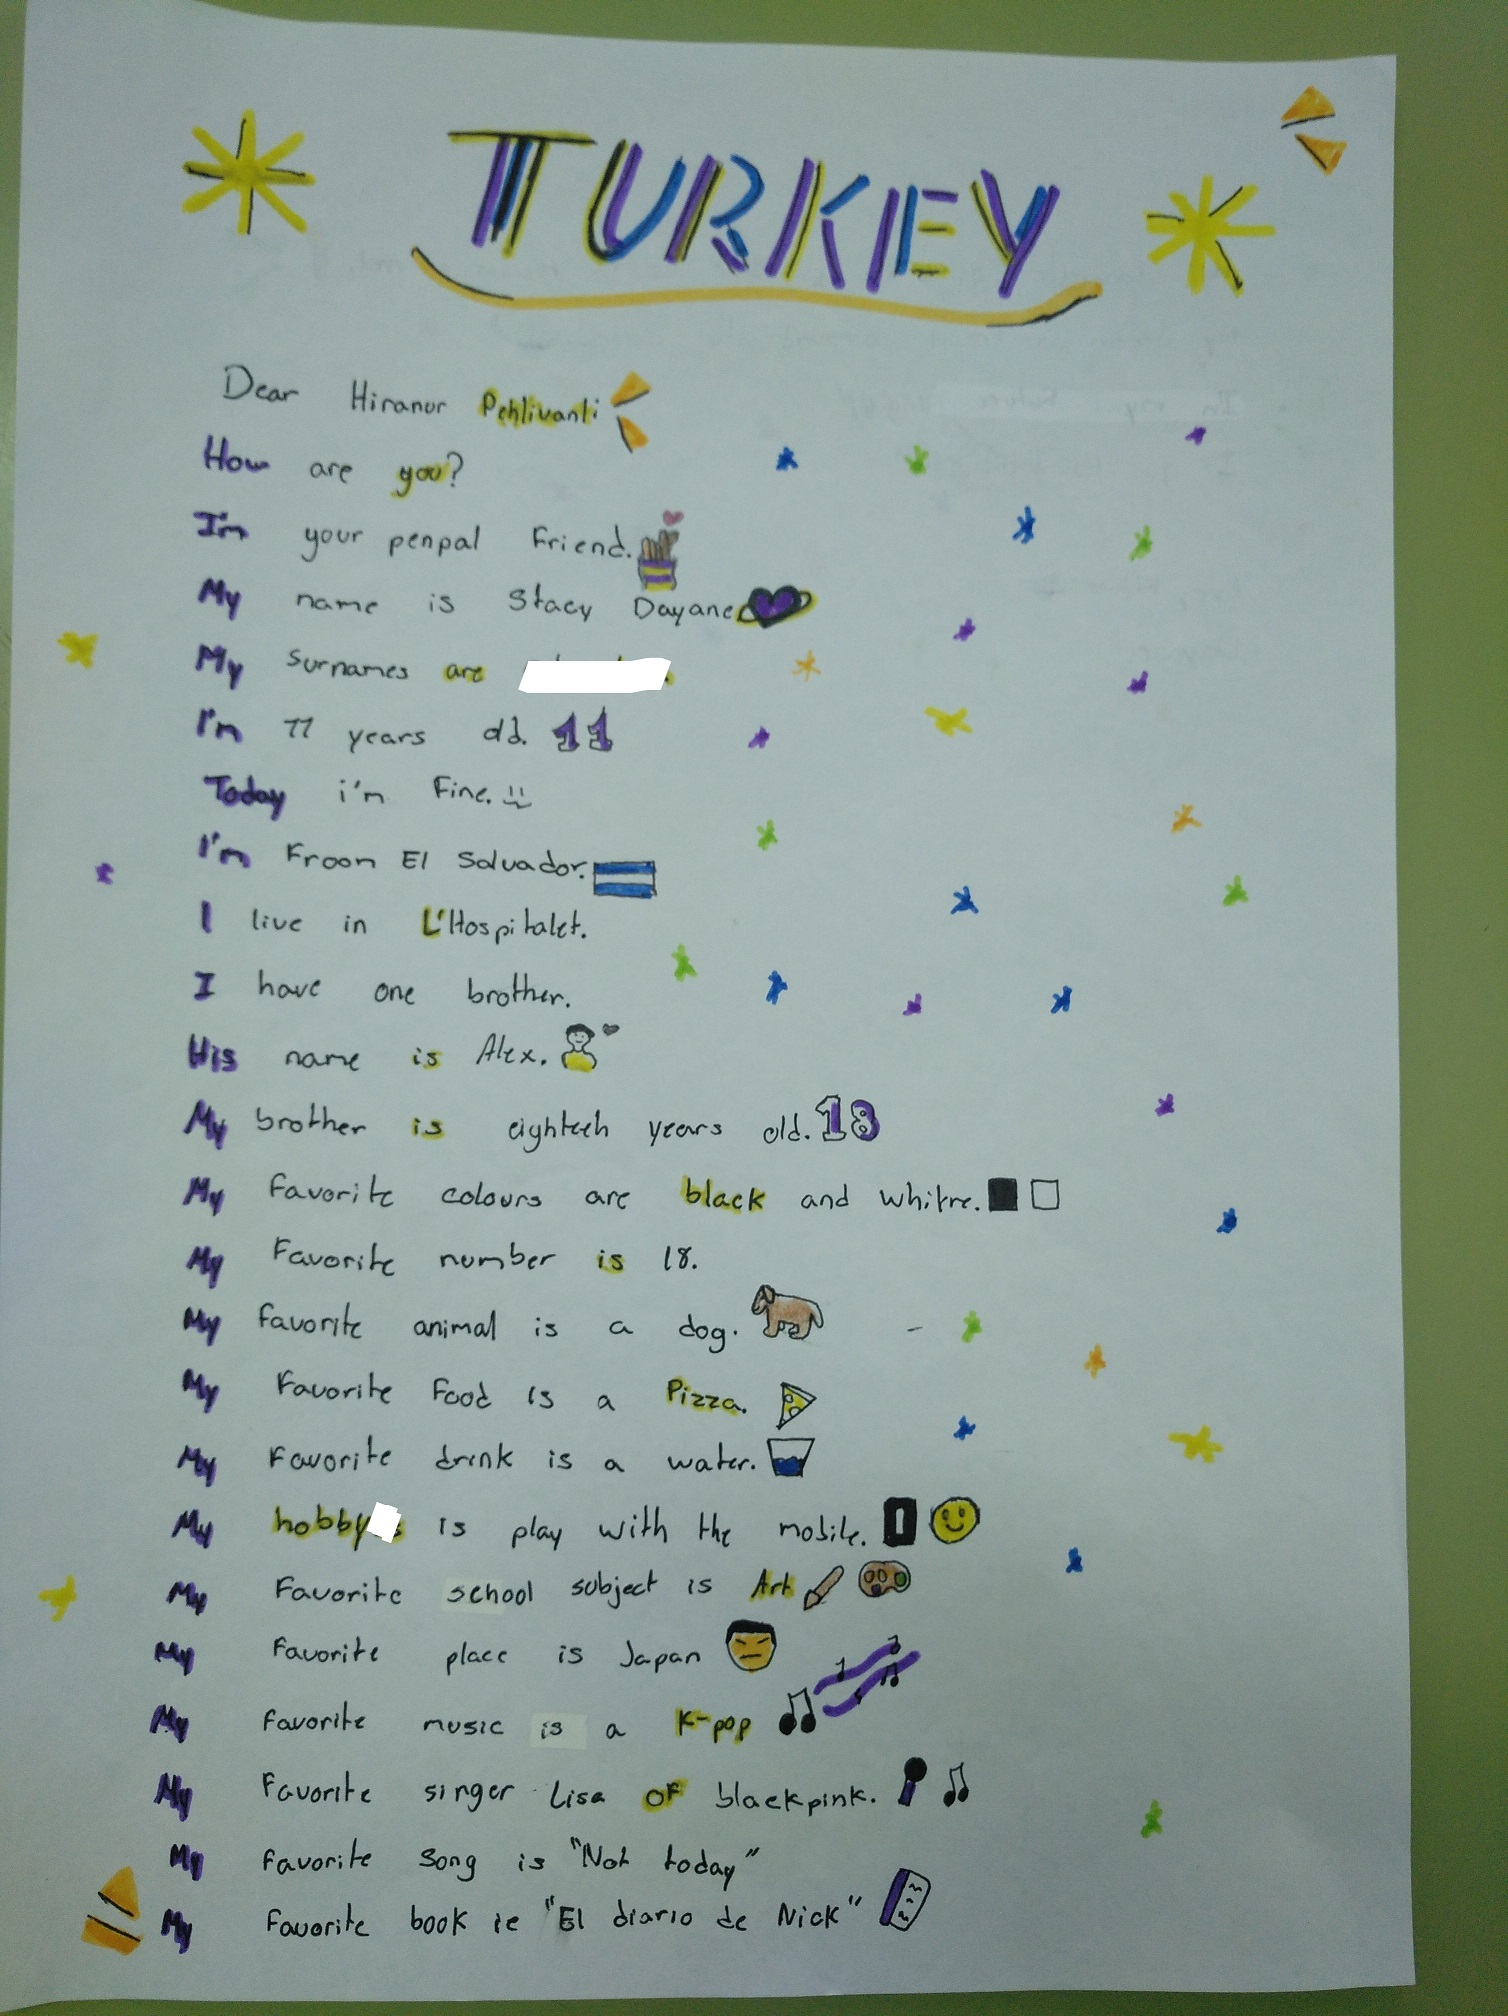 TURKEY
Dear Hiranur Pehlivanli
How are you?
I'm your penpal Friend.
My name is Stacy Dayane
My Surnames are
I'm 11 years old. 11
Today i'm Fine.
I'm Froom El Salvador.
I live in L'Hospitalet.
I have one brother.
His name is Alex.
My brother is eighteeh years old. 18
My favorite colours are black and whitre.
My Favorite number is 18.
My favorite animal is a dog.
My Favorite Food is a Pizza.
My Favorite drink is a water.
My hobby is play with the mobile.
My Favorite school subject is Art
My Favorite place is Japan
My Favorite music is a K-pop
My Favorite singer Lisa OF blackpink.
My Favorite Song is "Not today"
My Favorite book ie "El diario de Nick"